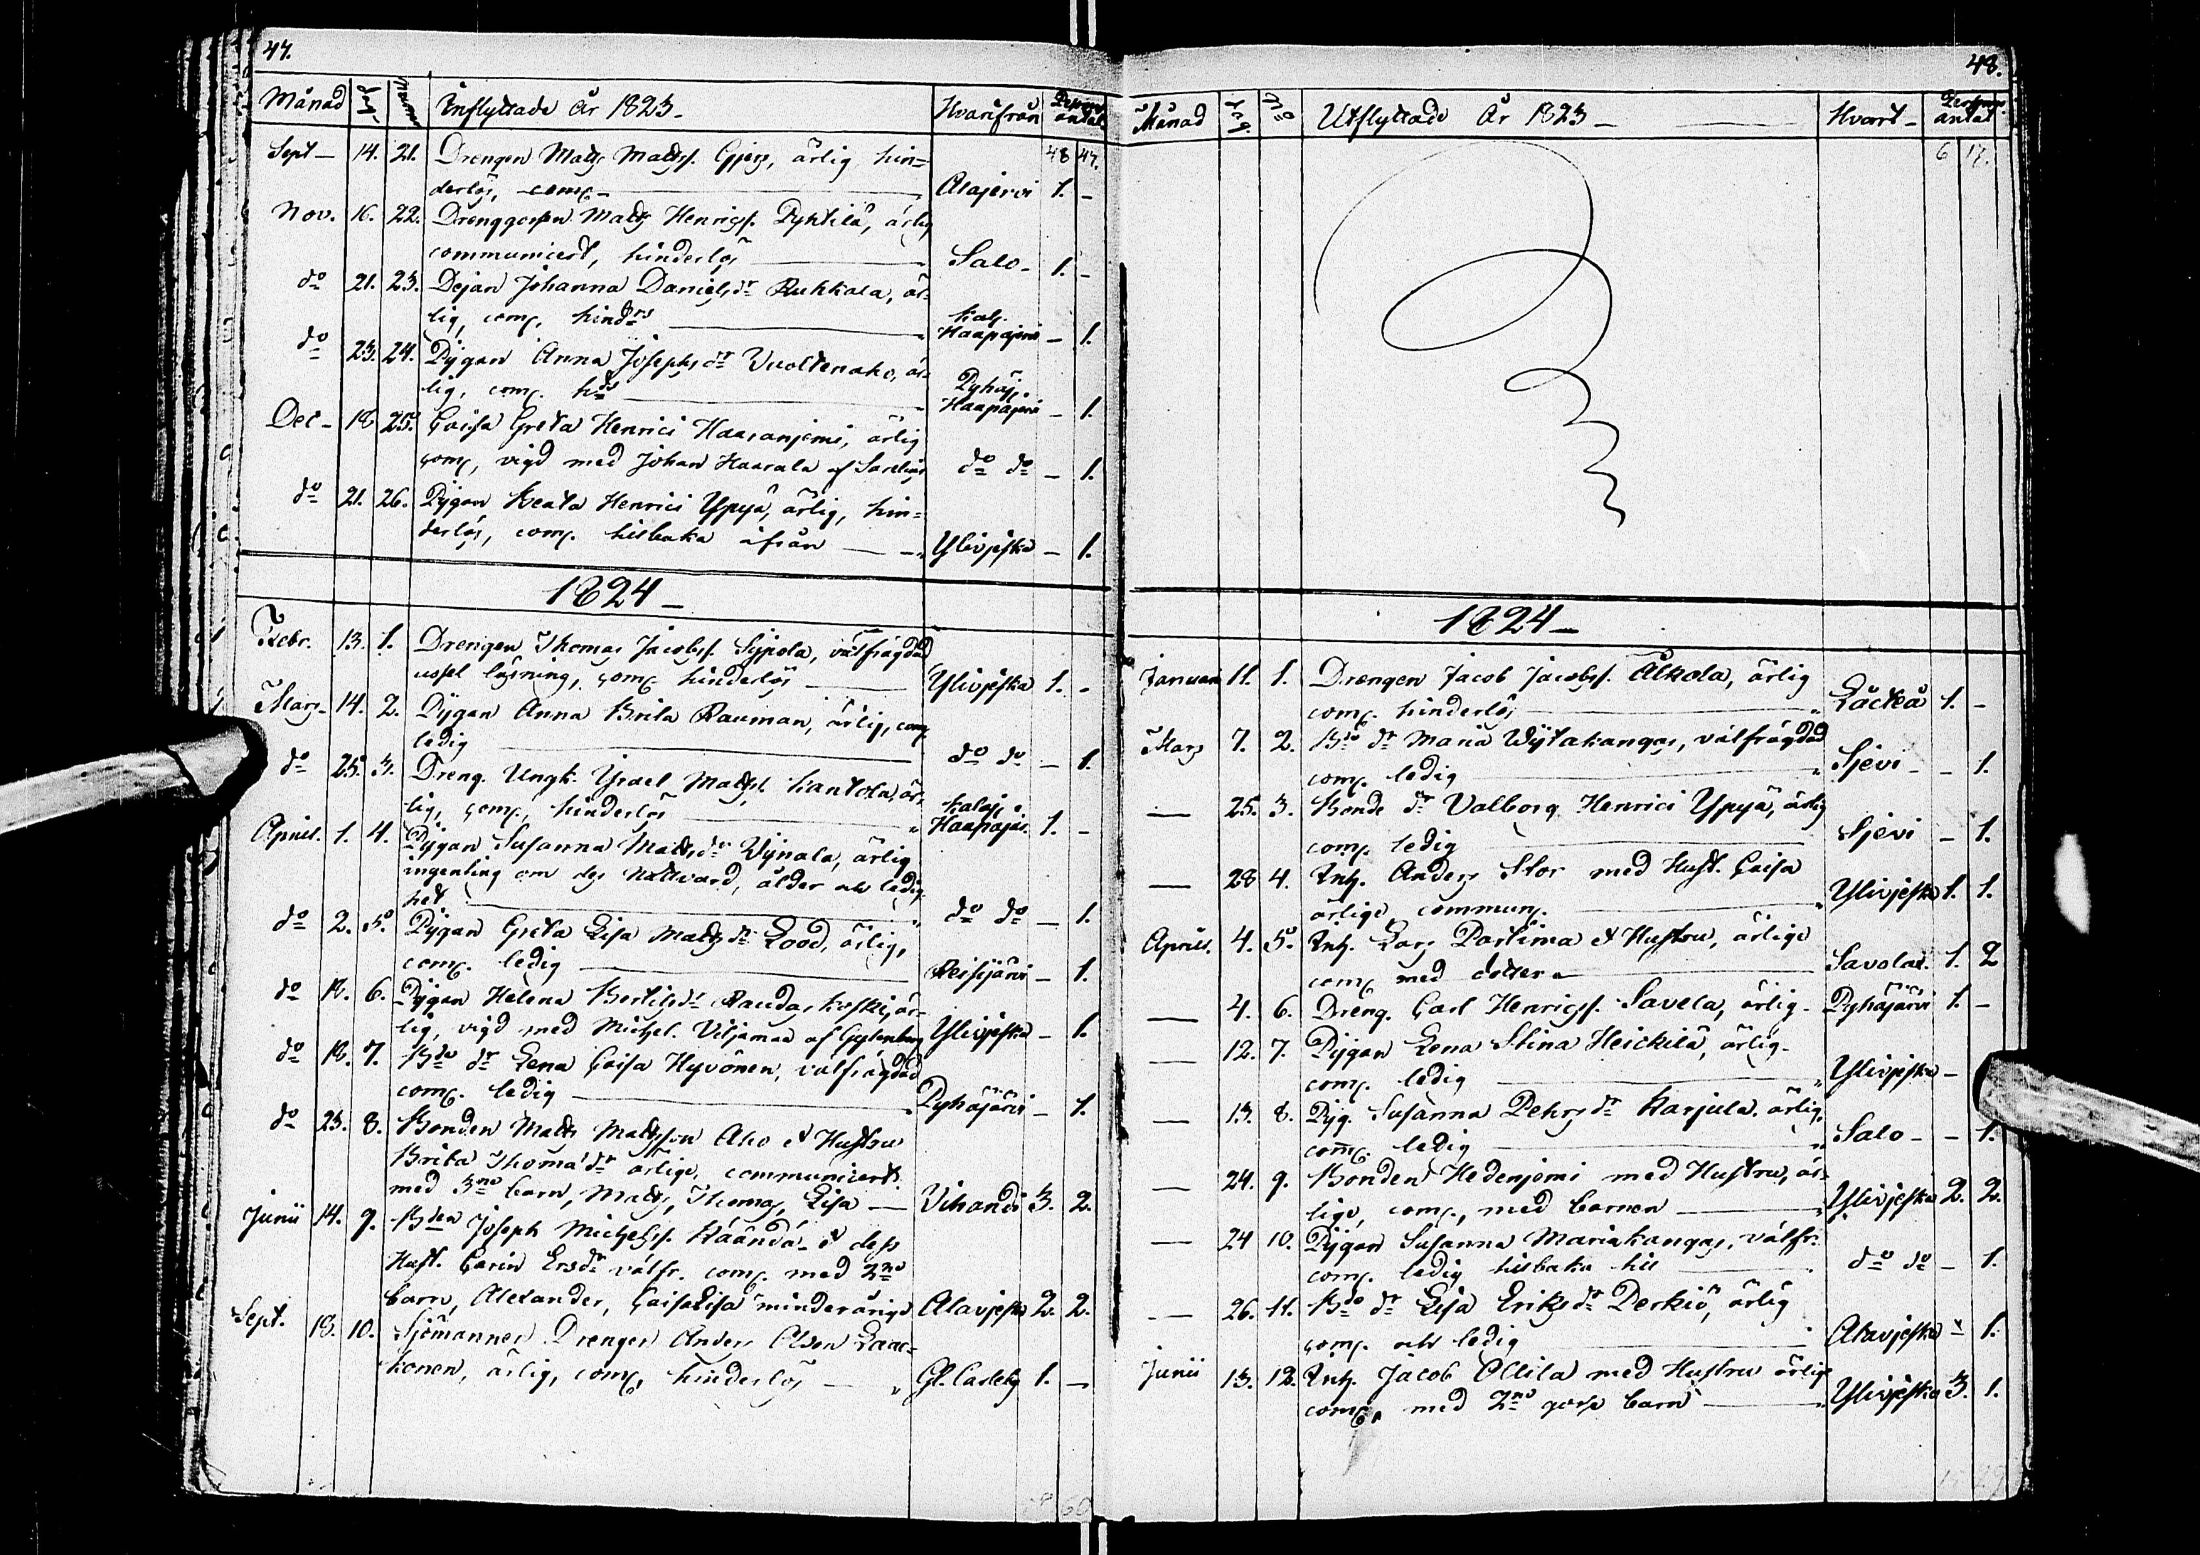 47.
Månad Dag Inflyttade År 1823. Hvarifrån Person antal
48 47.
Sept 14. 21. Drengen Matts Mattss. Gjers, ärlig hin=
derlös, com. Alajervi 1. -
Nov. 16. 22. Drenggossen Matts Henricss. Pyhtilä, ärlig
communicert, hinderlös Salo 1. -
do 21. 23. Pejan Johanna Daniels dr Rukkala, är=
lig, com. hindrs Kalj. Haapajervi - 1.
do 23. 24. Pigan Anna Josephs dr Vuoltenaho, är=
lig, com. hds Pyhäj. Haapajervi - 1.
Dec 18 25. Caisa Greta Henrici Haaranjemi, ärlig
com, vigd med Johan Haarala af do do - 1.
do 21. 26. Pigan Beata Henrici Yppyä, ärlig, hin=
derlös, com. tilbaka ifrån Ylivjeska - 1.
1824
Febr. 13. 1. Drengen Thomas Jacobss. Sijpola, välfrägdad
ussel läsning, com hinderlös Ylivjeska 1. -
Mars 14. 2. Pigan Anna Brita Rauman, ärlig, com
ledig do do - 1.
do 25. 3. Dreng. Ungk. Ysrael Matss. Kantola, är=
lig, com, hinderlös Kalaj. Haapajer. 1. -
April. 1. 4. Pigan Susanna Matts dr Wijnala, ärlig
ingenting om des Nattvard, ålder och ledig
het do do - 1.
do 2. 5. Pigan Greta Lisa Matts dr Lood, ärlig,
com. ledig Reisjärvi - 1.
do 18. 6. Pigan Helena Bertils dr Raudaskoski, är=
lig, vigd med Michel Viljamaa af Gyllenberg Ylivjeska - 1.
do 18. 7. Bde dr Lena Caisa Hyvönen, välfrägdad
com. ledig Pyhäjärvi - 1.
do 23. 8. Bonden Matts Mattsson Aho et Hustru
Brita Thomæ dr ärlige, communicert.
med 3ne barn, Matts, Thomas, Lisa Vihandi 3. 2.
Junii 14. 9. Bden Joseph Michelss. Käändä et dess
Hust. Carin Ers dr välfr. com. med 2ne
barn, Alexander, Caisa Lisa minderårige Alavjeska 2. 2.
Sept. 18. 10. Sjömannen Drengen Anders Olson Laac=
konen, ärlig, com, hinderlös Gl. Carleby 1. -
48.
Månad Dag No Utflyttade År 1823 Hvart Person antal
6 17.
1824
Januari 11. 1. Drengen Jacob Jacobss. Alkola, ärlig
com. hinderlös Låcktå 1. -
Mars 7. 2. Bde dr Maria Wijtakangas, välfrägdad
com. ledig Sjevi - 1.
25. 3. Bonde dr Valborg Henrici Yppyä, ärlig
com. ledig Sjevi - 1.
28 4. Inh. Anders Stor med Hust. Caisa
ärlige, commun. Ylivjeska 1. 1.
April. 4. 5. Inh. Lars Partima et Hustru, ärlige
com med dotter Savolax. 1. 2
4. 6. Dreng. Carl Henricss. Savela, ärlig Pyhäjärvi 1. -
12. 7. Pigan Lena Stina Heickilä, ärlig
com. ledig Ylivjeska -
13. 8. Pig. Susanna Pehrs dr Karjula. ärlig,
com. ledig Salo - 1.
24. 9. Bonden Hedenjemi med Hustru, är=
lige, com., med barnen Ylivjeska 2. 2.
24 10. Pigan Susanna Mariakangas, välfr.
com. ledig tilbaka til do do - 1.
26. 11. Bde dr Lisa Eriks dr Perkiö, ärlig
com. och ledig Alavjeska - 1.
Junii 13. 12. Inh. Jacob Ollila med Hustru ärlige
com, med 2ne gosse barn Ylivjeska 3. 1.